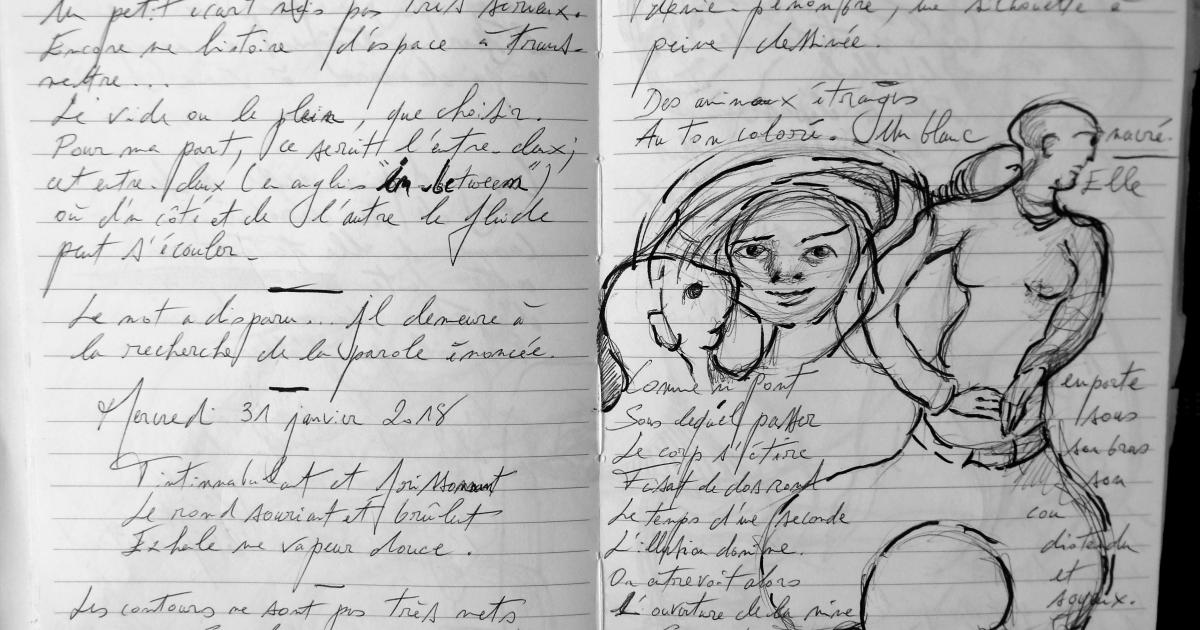 Un petit écart mais pas très sérieux.
Encore une histoire d'espace à trans-
mettre...
Le vide ou le plein, que choisir.
Pour ma part, ce serait l'entre-deux;
cet entre-deux (en anglais "in between")
où d'un côté et de l'autre le fluide
peut s'écouler.
Le mot a disparu... Il demeure à
la recherche de la parole énoncée.
Mercredi 31 janvier 2018
Tintinnabulant et frissonnant
Le rond souriant et brûlant
Exhale une vapeur douce.
Les contours ne sont pas très nets
pénombre, une silhouette à
peine dessinée.
Des animaux étranges
Au ton coloré. Un blanc nacré.
Elle
Comme un Pont
Sous lequel passer
Le corps s'étire
Faisant de dos rond
Le temps d'une seconde
L'illusion domine.
On entrevoit alors
L'ouverture de la
emporte
sous
son bras
son
cou
distendu
et
soyeux.